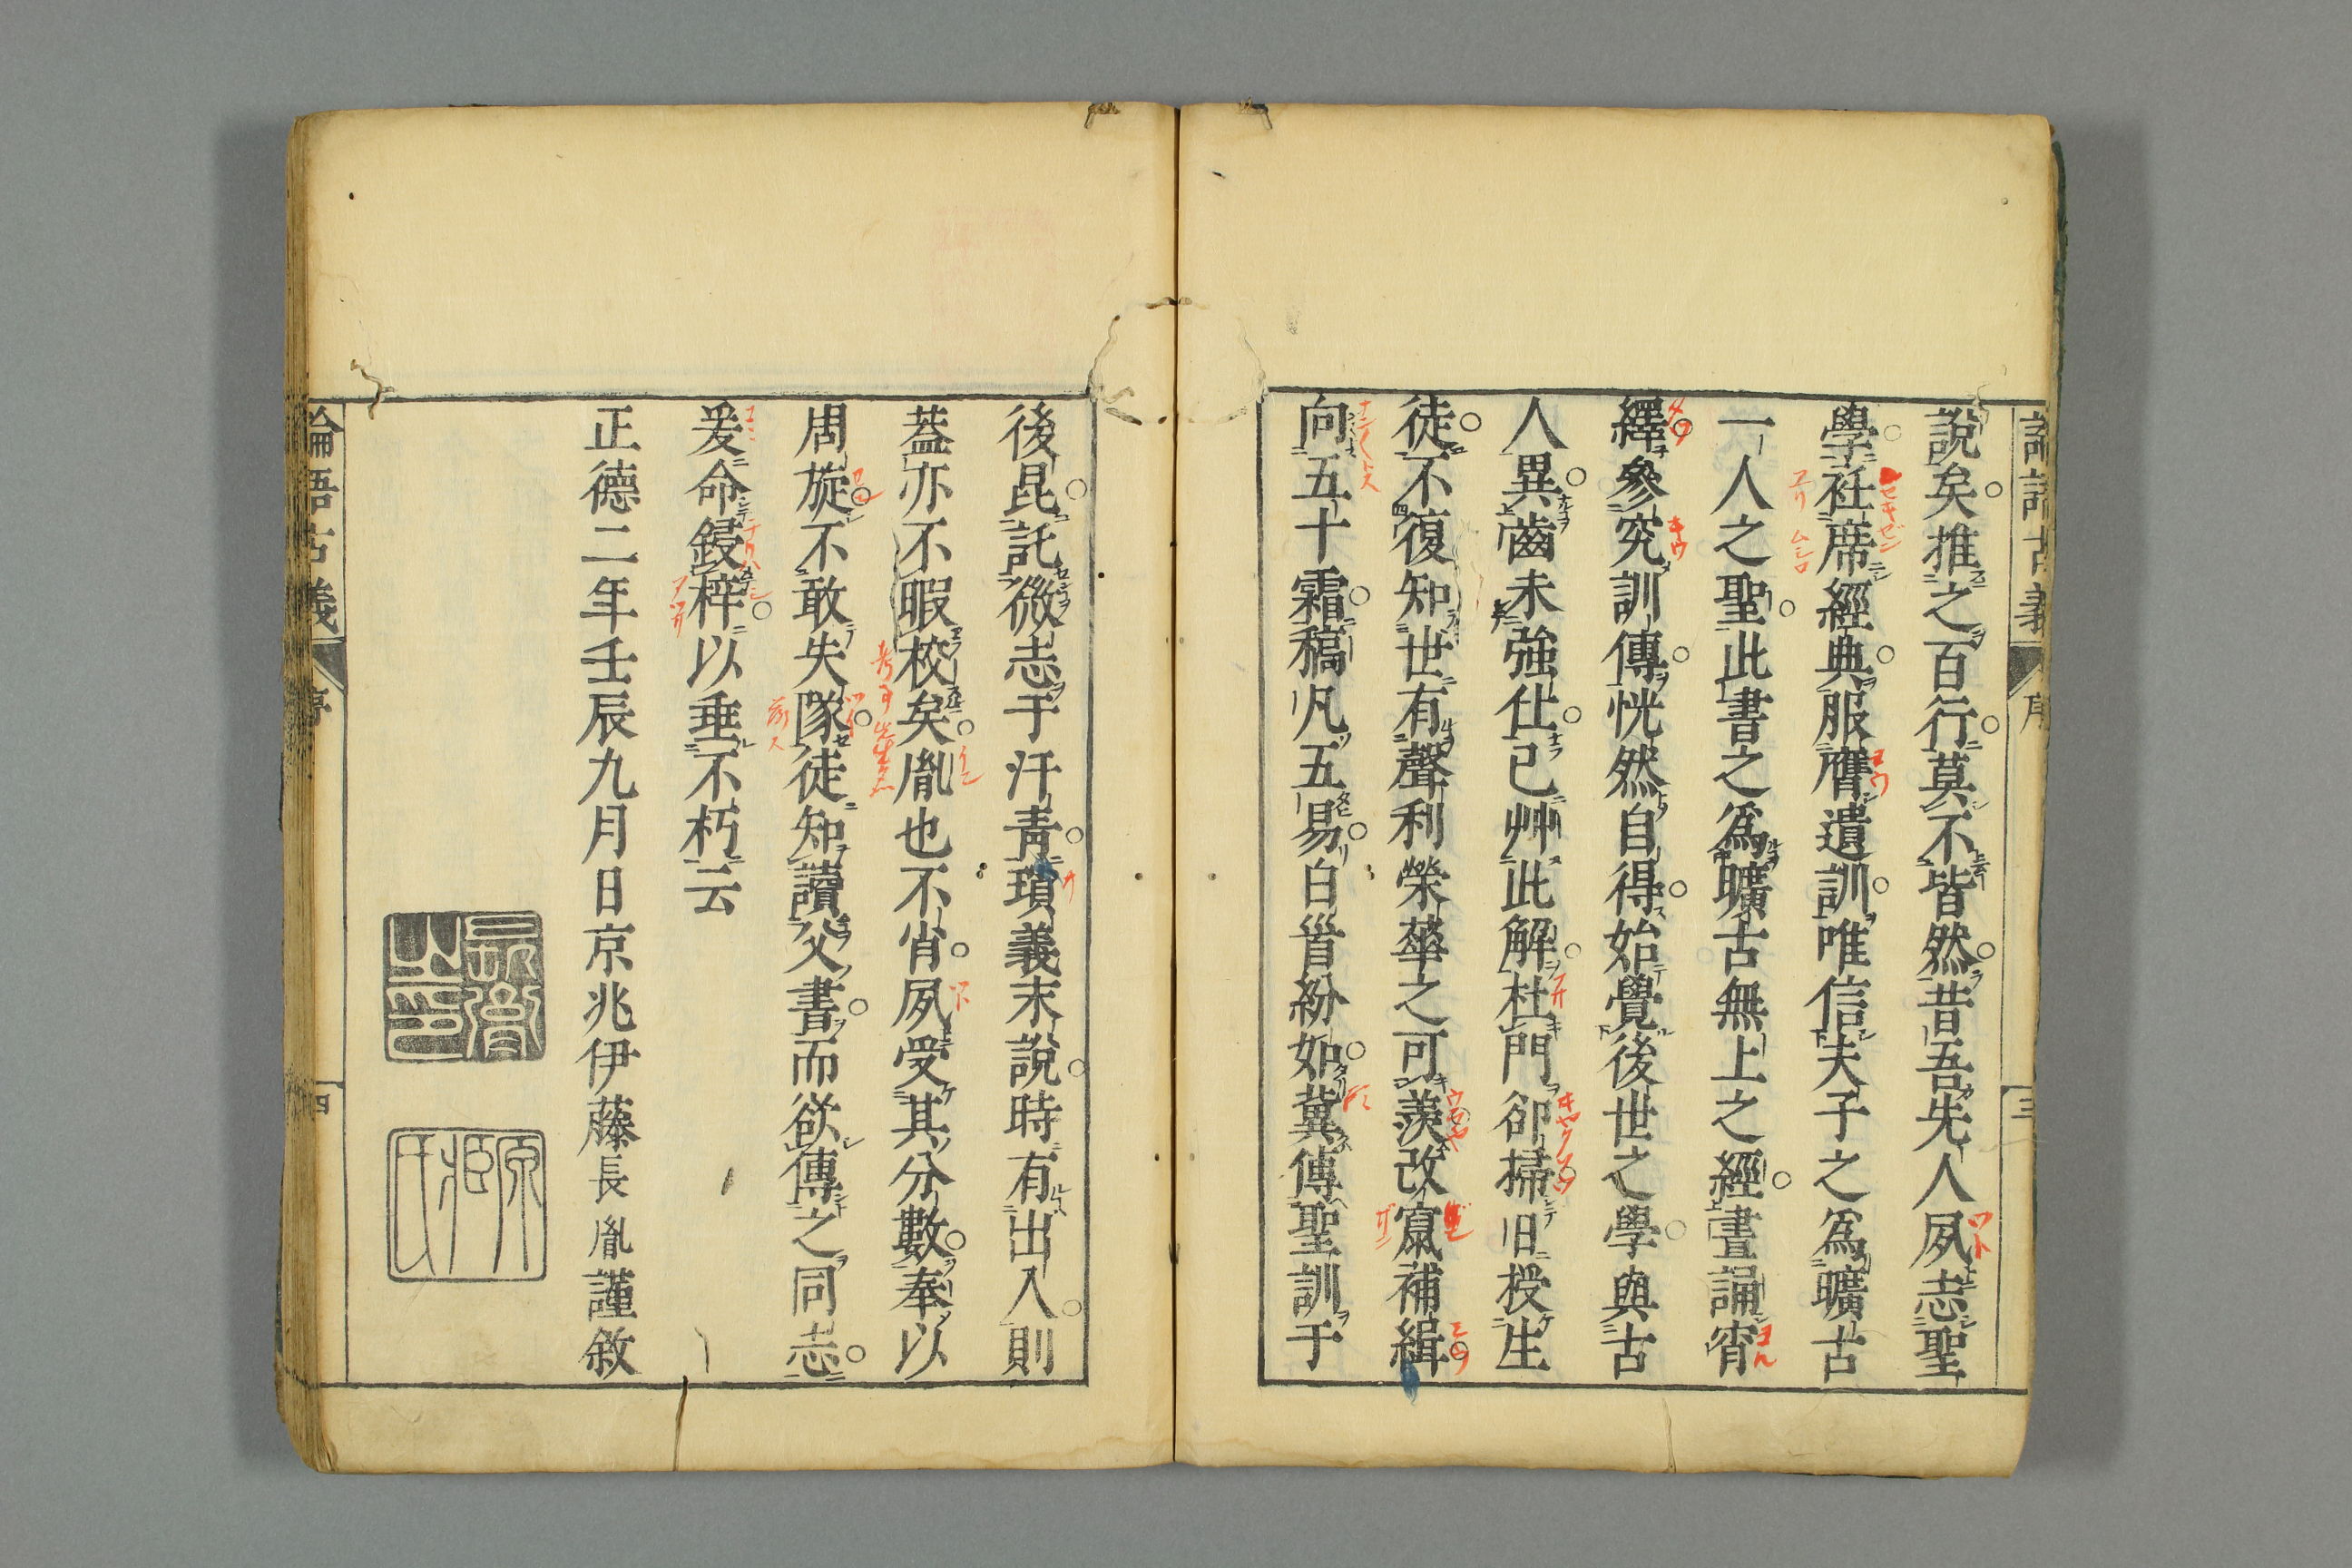 說矣推之百行莫不皆然昔吾先人夙志聖
學袵席經典服膺遺訓唯信夫子之爲曠古
一人之聖此書之爲曠古無上之經晝誦宵
繹參究訓傳恍然自得始覺後世之學與古
人異齒未強仕已艸此解杜門卻掃旧授生
徒不復知世有聲利榮華之可羨改竄補緝
向五十霜稿凡五易白首紛如冀傳聖訓于
後昆託微志于汗青瑣義末說時有出入則
蓋亦不暇校矣胤也不肖夙受其分數奉以
周旋不敢失隊徒知讀父書而欲傳之同志
爰命鋟梓以垂不朽云
正德二年壬辰九月日京兆伊藤長胤謹敘
論語古義
序
四